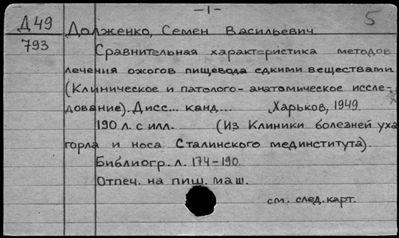 -1-
5
Д49
793
Долженко, Семен Васильевич
Сравнительная характеристика методов
лечения ожогов пищевода едкими веществами
(Клиническое и патолого-анатомическое иссле-
дование). Дисс... канд... Харьков, 1949.
190 л. с илл. (Из Клиники болезней уха
горла и носа Сталинского мединститута).
Библиогр. л. 174-190.
Отпеч. на пиш. маш.
см. след. карт.